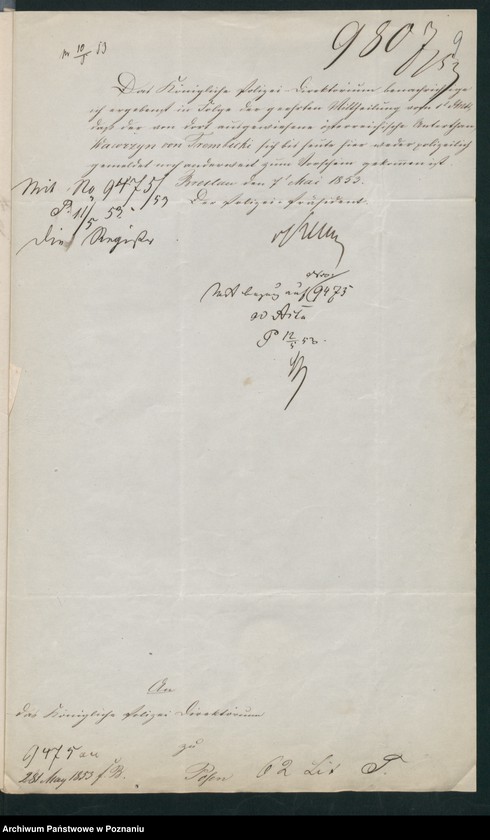 9807/53
9
pr 10/5 53
Das Königliche Polizei-Direktorium benachrichtige
ich ergebenst in Folge der geehrten Mittheilung vom
daß der von dort ausgewiesene österreichische Unterthan
Wawrzyn von Trembecki sich bis heute hier weder polizeilich
gemeldet noch anderweit zum Vorschein gekommen ist
Breslau den 7t Mai 1853.
Der Polizei-Präsident.
Mit No 9475/53
P. 11/5 53
Die Register
Mit bezug auf 9475
ad Acta
P 12/5 53.
An
das Königliche Polizei Direktorium
zu
Posen
9475
28 May 1853
62 Lit T.
Archiwum Państwowe w Poznaniu